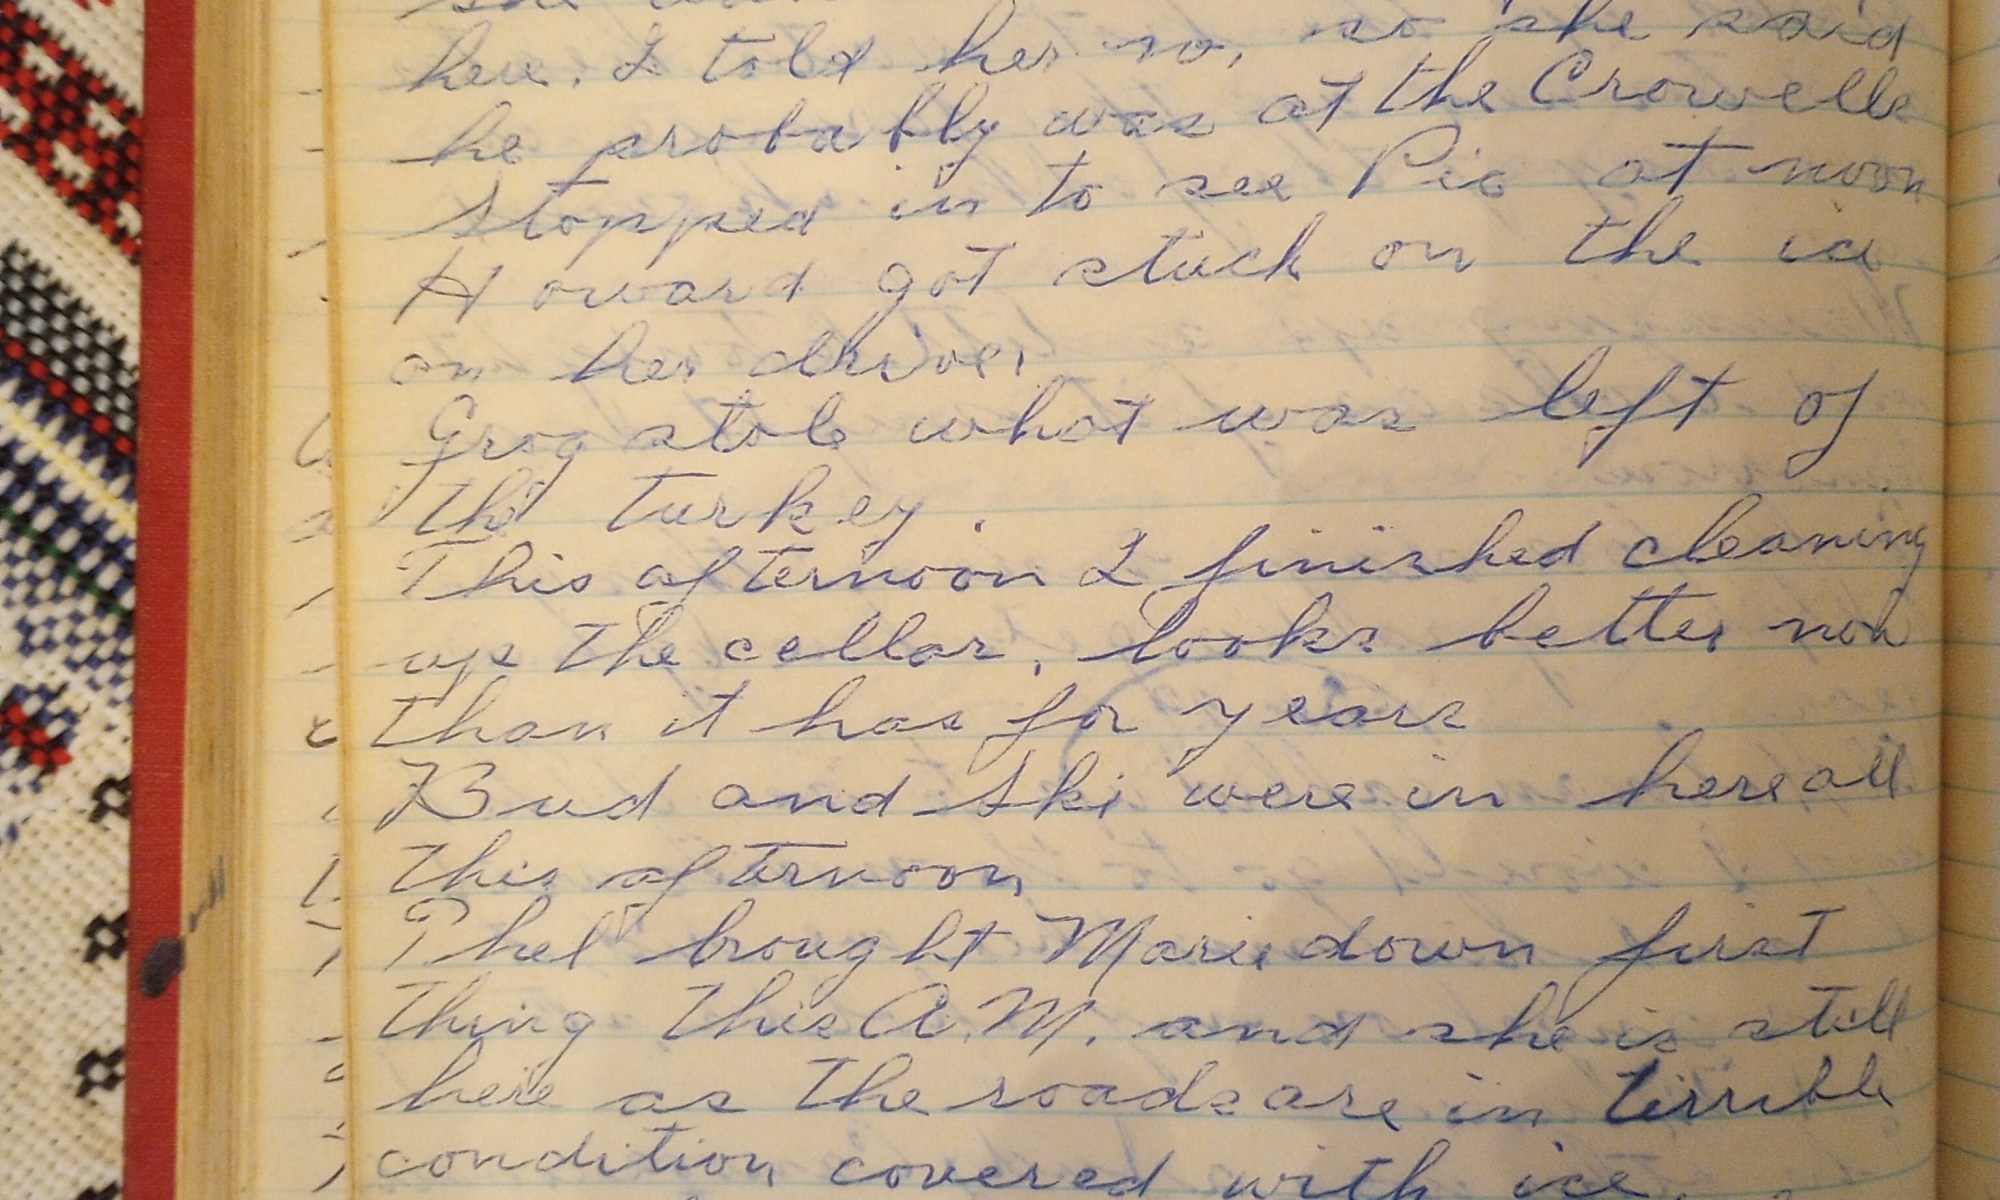 here. I told her no, so she said
he probably was at the Crowells
stopped in to see Pic at noon
Howard got stuck on the ice
on her drive.
Grog stole what was left of
the turkey.
This afternoon I finished cleaning
up the cellar, looks better now
than it has for years
Bud and Ski were in here all
this afternoon
Phel brought Marie down first
thing this A.M. and she is still
here as the roads are in terrible
condition covered with ice.